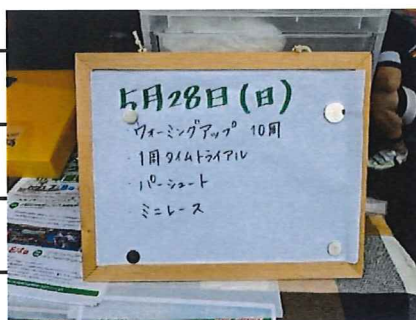 5月28日(日)
・ウォーミングアップ 10周
・1周タイムトライアル
・パーシュート
・ミニレース